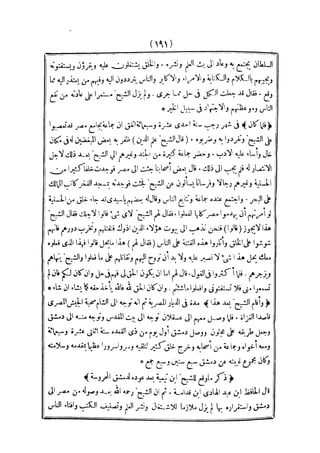 ﴿ ١٩١ ﴾
السلطان يجتمع به وعاد الى بث العلم ونشره . والخلق يشتغلون عليه ويقرؤن ويستفتونه
ويجيبهم بالكلام والكتابة والامراء والاكابر والناس يترددون اليه وفيهم من يعتذر اليه مما
وقع . فقال قد جعلت الكل فى حل مما جرى . ولم يزل الشيخ مستمرا على عادته من نفع
الناس وموعظتهم والاجتهاد فى سبيل الخير *
﴿ فلما كان ﴾ فى شهر رجب سنة احدى عشرة وسبعمائة اتفق ان جماعة بجامع مصر قد تعصبوا
على الشيخ وتفردوا به وضربوه . ( قال الشيخ علم الدين ) ظفر به بعض المبغضين له فى مكان
خال وأساء عليه الادب . وحضر جماعة كثيرة من الجند وغيرهم الى الشيخ بعد ذلك لاجل
الانتصار له فلم يجب الى ذلك . قال بعض أصحابنا جئت الى مصر فوجدت خلقا كثيرا من
الحسينية وغيرهم رجالا وفرسانا يسألون عن الشيخ فجئت فوجدته بمسجد الفخر كاتب المماليك
على البحر . واجتمع عنده جماعة وتتابع الناس وقال له بعضهم ياسيدى قد جاء خلق من الحسينية
لو أمرتهم أن يهدموا مصر كلها لفعلوا . فقال لهم الشيخ لاى شئ قالوا لاجلك فقال الشيخ
هذا لا يجوز ( قالوا ) فنحن نذهب الى بيوت هؤلاء الذين اذوك فنقتلهم ونخرب دورهم فانهم
شوشوا على الخلق وأثاروا هذه الفتنة على الناس ( فقال لهم ) هذا ما يحل قالوا فهذا الذى فعلوه
معك يحل هذا شئ لا نصبر عليه ولا بد أن نروح اليهم ونقاتلهم على ما فعلوا والشيخ ينهاهم
ويزجرهم . فلما أكثروا فى القول . قال لهم اما ان يكون الحق لى فهم فى حل وان كان لكم فان لم
تسمعوا منى فلا تستفتونى وافعلوا ماشئتم . وان كان الحق لله فالله يأخذ حقه كما يشاء ان شاء *
﴿ وأقام الشيخ بعد هذا ﴾ مدة فى الديار المصرية ثم انه توجه الى الشام صحبة الجيش المصرى
قاصدا الغزاة . فلما وصل معهم الى عسقلان توجه الى بيت المقدس وتوجه منه الى دمشق
وجعل طريقه على عجلون ووصل دمشق أول يوم من ذى القعدة سنة اثنتى عشرة وسبعمائة
ومعه أخواه وجماعة من أصحابه وخرج خلق كثير لتلقيه وسروا سرورا عظيما بمقدمه وسلامته
وكان مجموع غيبته عن دمشق سبع سنين وسبع جمع *
﴿ ذكر ما وقع للشيخ ابن تيمية بعد عوده لدمشق المحروسة ﴾
قال الحافظ ابن عبد الهادى ابن قدامة . ثم ان الشيخ رحمه الله بعد وصوله من مصر الى
دمشق واستقراره بها لم يزل ملازما للاشتغال ونشر العلم وتصنيف الكتب وافتاء الناس